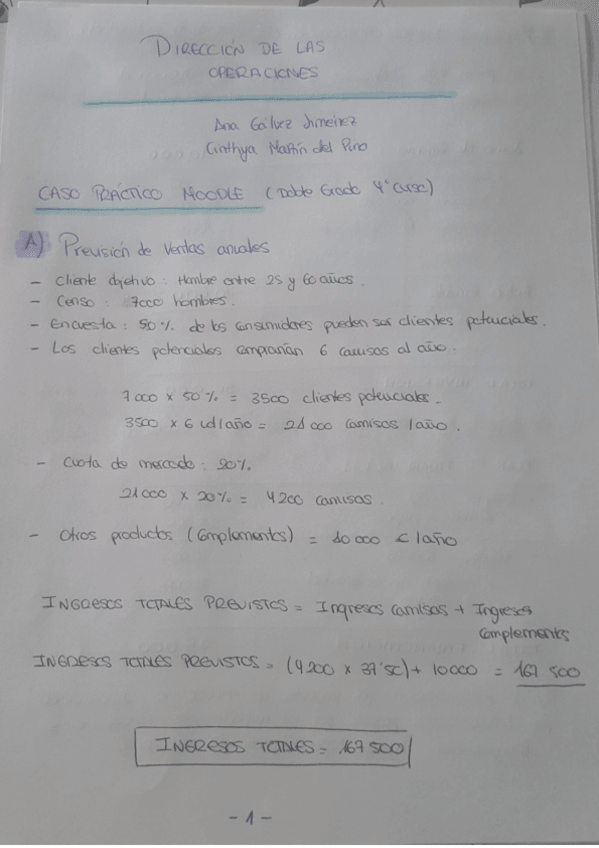 DIRECCIÓN DE LAS
OPERACIONES
Ana Gálvez Jimenez
Cinthya Martín del Pino
CASO PRÁCTICO MOODLE (Doble Grado 4º Curso)
A) Previsión de ventas anuales
- Cliente objetivo: Hombre entre 25 y 60 años.
- Censo: 7000 hombres.
- Encuesta: 50% de los consumidores pueden ser clientes potenciales.
- Los clientes potenciales comprarían 6 camisas al año.
7000 x 50% = 3500 clientes potenciales.
3500 x 6 ud/año = 21000 camisas/año.
- Cuota de mercado: 20%.
21000 x 20% = 4200 camisas.
- Otros productos (Complementos) = 10000 €/año
INGRESOS TOTALES PREVISTOS = Ingresos Camisas + Ingresos
Complementos
INGRESOS TOTALES PREVISTOS = (4200 x 37'50) + 10000 = 167 500
INGRESOS TOTALES = 167 500
- 1 -